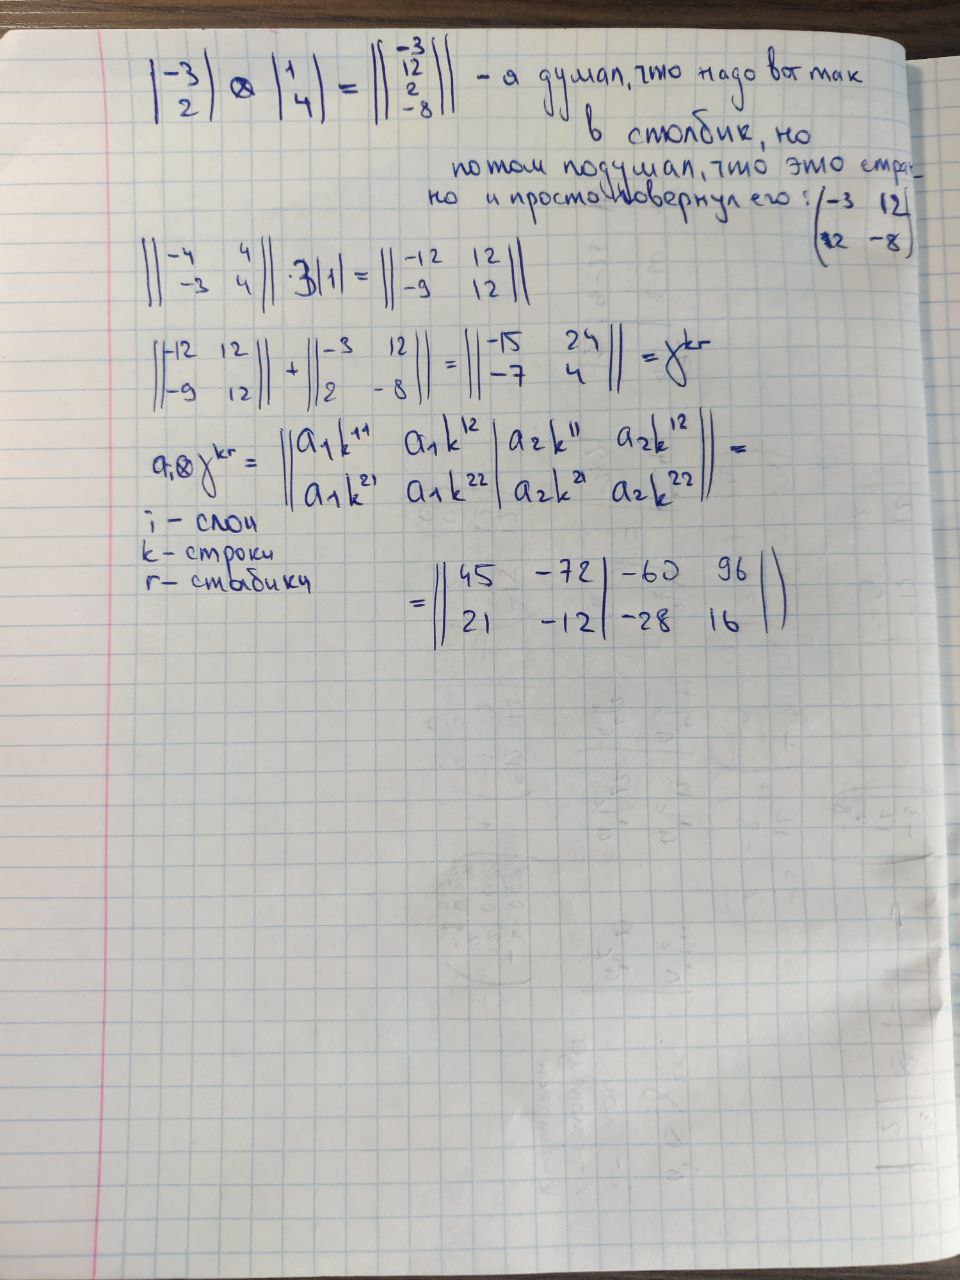 |-3 2| ⊗ |1 4| = ||-3 12 2 -8|| - я думал, что надо вот так
в столбик, но
потом подумал, что это стран-
но и просто повернул его: (-3 12 2 -8)
||-4 4 -3 4|| · 3|1| = ||-12 12 -9 12||
||-12 12 -9 12|| + ||-3 12 2 -8|| = ||-15 24 -7 4|| = γ^kr
a_i ⊗ γ^kr = ||a₁k¹¹ a₁k¹² | a₂k¹¹ a₂k¹²
a₁k²¹ a₁k²² | a₂k²¹ a₂k²²|| =
i - слои
k - строки
r - столбики
= ||45 -72 | -60 96
21 -12 | -28 16||)